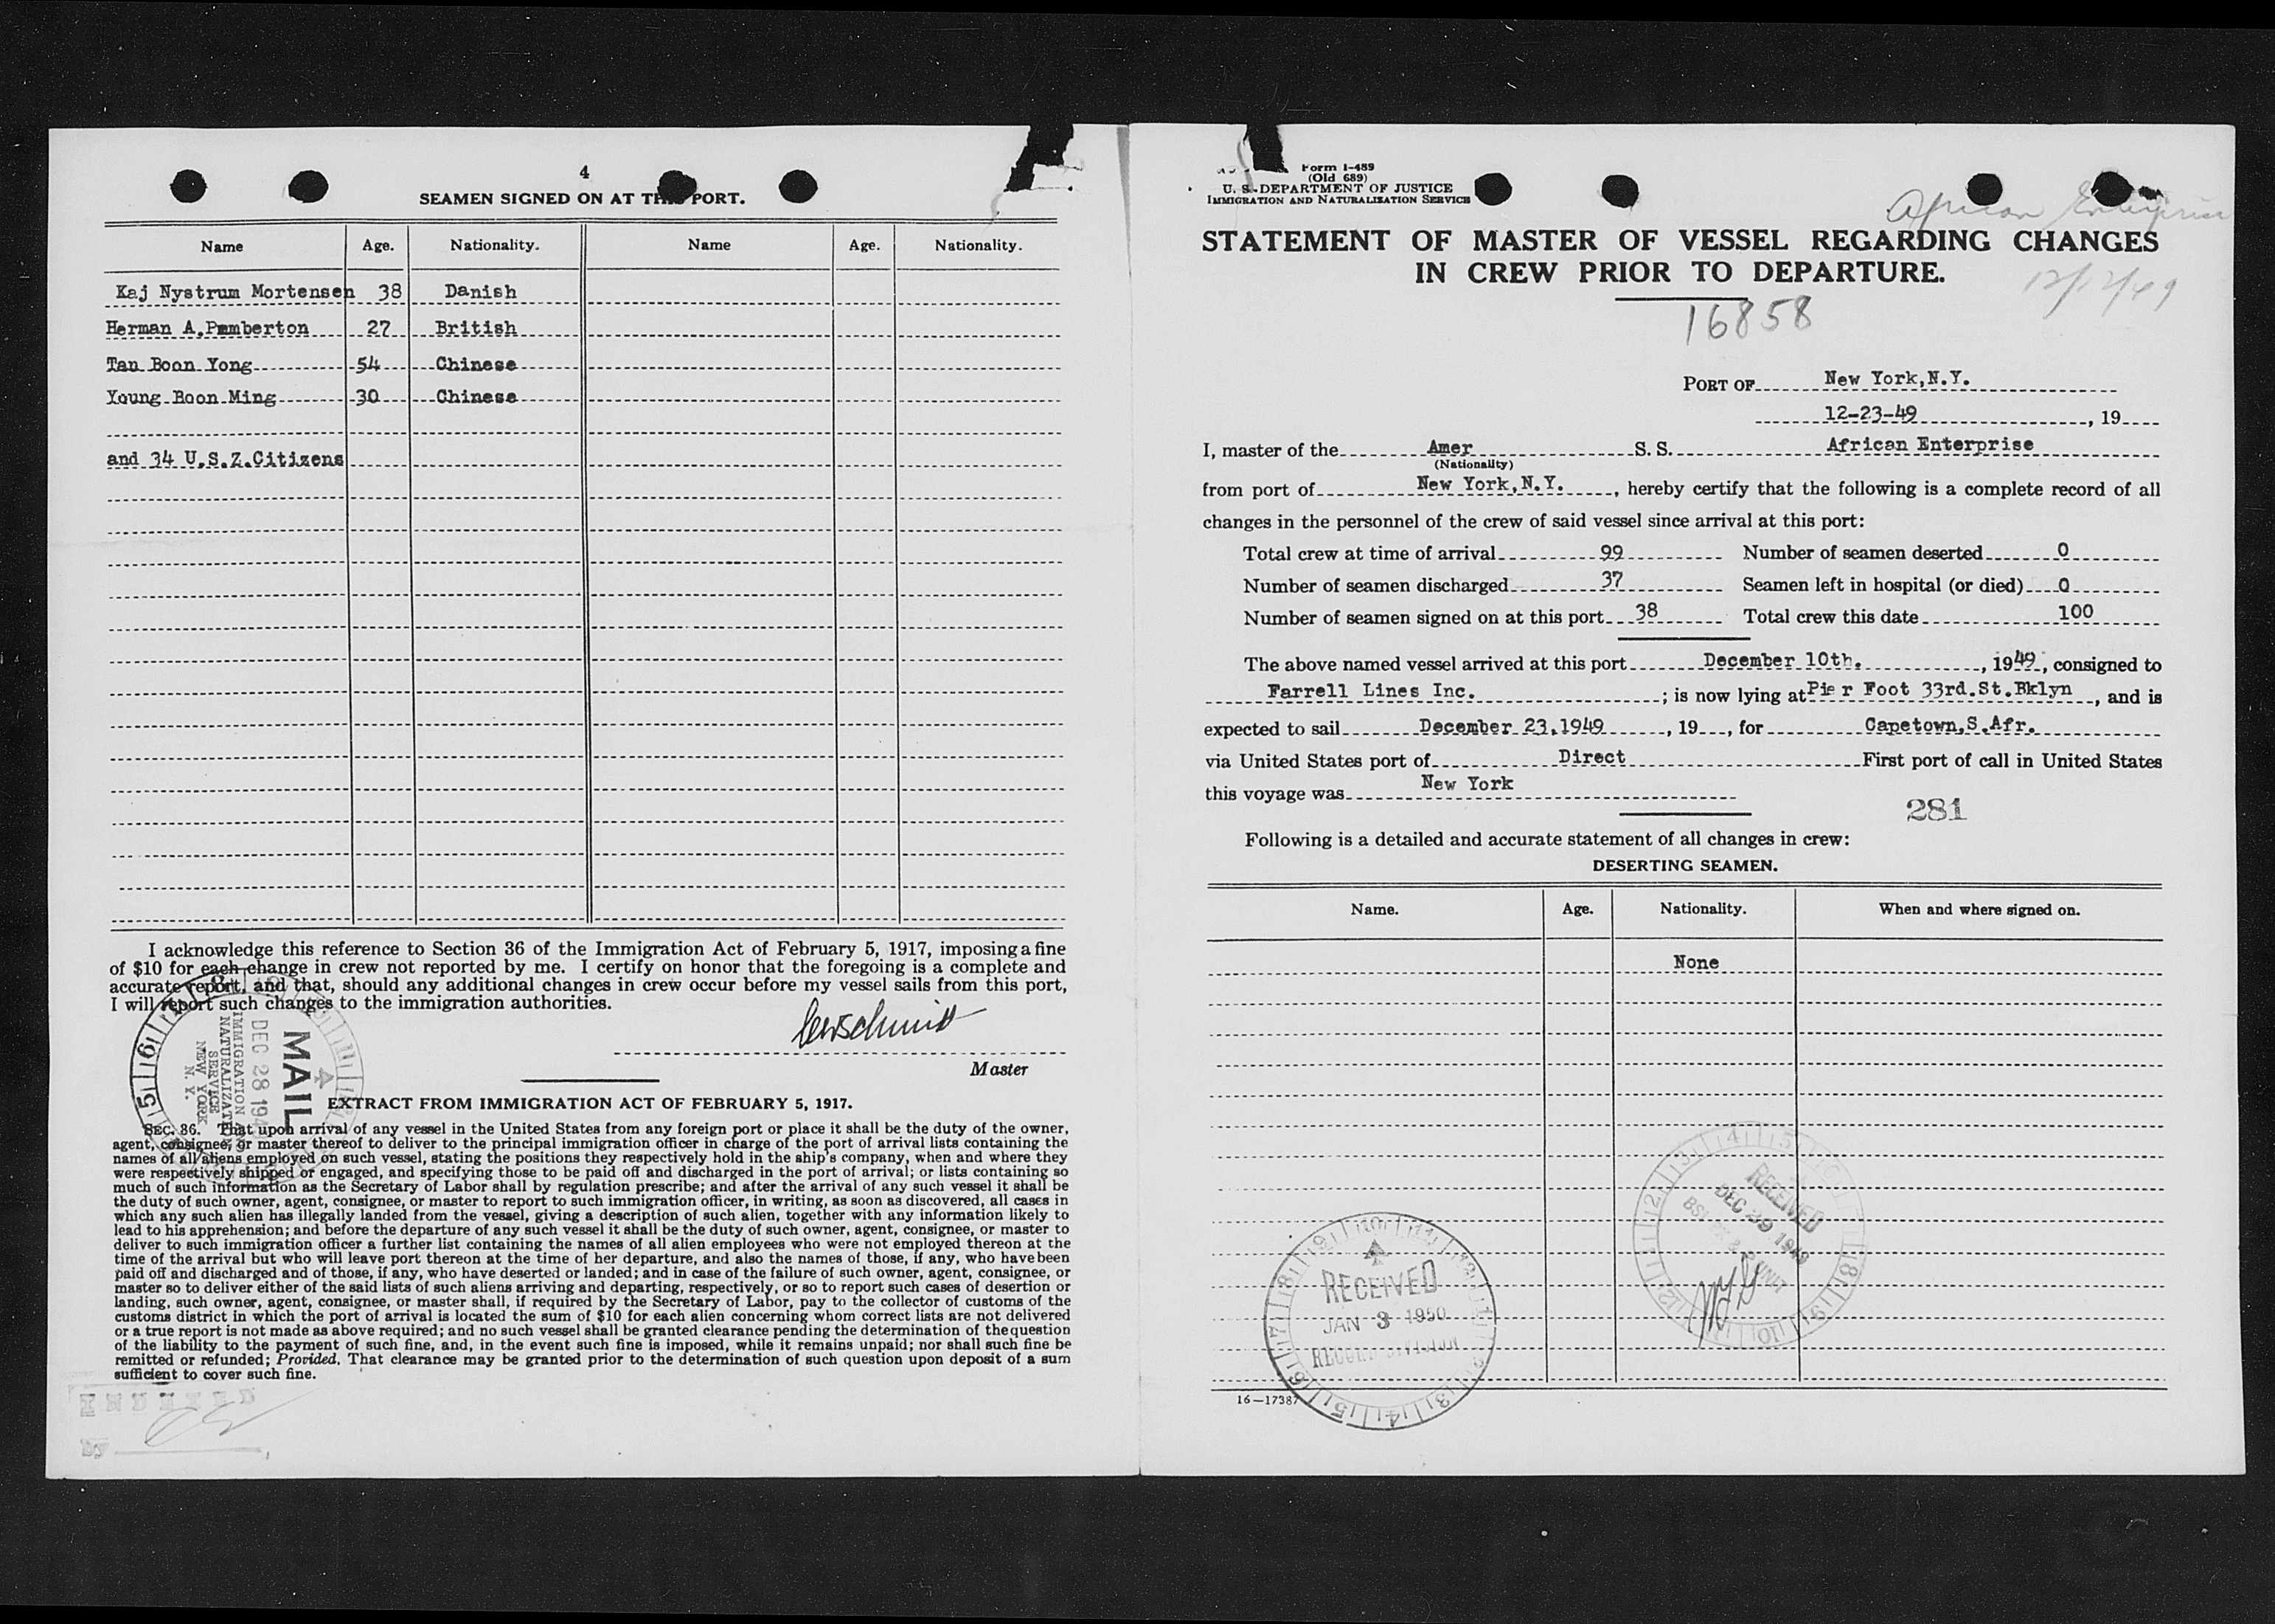 4
SEAMEN SIGNED ON AT THIS PORT.
Name Age. Nationality. Name Age. Nationality.
Kaj Nystrum Mortensen 38 Danish
Herman A.Pemberton 27 British
Tan Boon Yong 54 Chinese
Young Boon Ming 30 Chinese
and 34 U.S.Z.Citizens
I acknowledge this reference to Section 36 of the Immigration Act of February 5, 1917, imposing a fine
of $10 for each change in crew not reported by me. I certify on honor that the foregoing is a complete and
accurate report, and that, should any additional changes in crew occur before my vessel sails from this port,
I will report such changes to the immigration authorities.
Master
MAIL
DEC 28 194
IMMIGRATION
NATURALIZATION
SERVICE
NEW YORK
N. Y.
EXTRACT FROM IMMIGRATION ACT OF FEBRUARY 5, 1917.
SEC. 36. That upon arrival of any vessel in the United States from any foreign port or place it shall be the duty of the owner,
agent, consignee, or master thereof to deliver to the principal immigration officer in charge of the port of arrival lists containing the
names of all aliens employed on such vessel, stating the positions they respectively hold in the ship's company, when and where they
were respectively shipped or engaged, and specifying those to be paid off and discharged in the port of arrival; or lists containing so
much of such information as the Secretary of Labor shall by regulation prescribe; and after the arrival of any such vessel it shall be
the duty of such owner, agent, consignee, or master to report to such immigration officer, in writing, as soon as discovered, all cases in
which any such alien has illegally landed from the vessel, giving a description of such alien, together with any information likely to
lead to his apprehension; and before the departure of any such vessel it shall be the duty of such owner, agent, consignee, or master to
deliver to such immigration officer a further list containing the names of all alien employees who were not employed thereon at the
time of the arrival but who will leave port thereon at the time of her departure, and also the names of those, if any, who have been
paid off and discharged and of those, if any, who have deserted or landed; and in case of the failure of such owner, agent, consignee, or
master so to deliver either of the said lists of such aliens arriving and departing, respectively, or so to report such cases of desertion or
landing, such owner, agent, consignee, or master shall, if required by the Secretary of Labor, pay to the collector of customs of the
customs district in which the port of arrival is located the sum of $10 for each alien concerning whom correct lists are not delivered
or a true report is not made as above required; and no such vessel shall be granted clearance pending the determination of the question
of the liability to the payment of such fine, and, in the event such fine is imposed, while it remains unpaid; nor shall such fine be
remitted or refunded; Provided, That clearance may be granted prior to the determination of such question upon deposit of a sum
sufficient to cover such fine.
Form I-489
(Old 689)
U. S. DEPARTMENT OF JUSTICE
IMMIGRATION AND NATURALIZATION SERVICE
African Enterprise
STATEMENT OF MASTER OF VESSEL REGARDING CHANGES
IN CREW PRIOR TO DEPARTURE.
12/12/49
16858
PORT OF New York,N.Y.
12-23-49, 19
I, master of the Amer S. S. African Enterprise
(Nationality)
from port of New York,N.Y., hereby certify that the following is a complete record of all
changes in the personnel of the crew of said vessel since arrival at this port:
Total crew at time of arrival 99 Number of seamen deserted 0
Number of seamen discharged 37 Seamen left in hospital (or died) 0
Number of seamen signed on at this port 38 Total crew this date 100
The above named vessel arrived at this port December 10th., 1949, consigned to
Farrell Lines Inc.; is now lying at Pier Foot 33rd.St.Bklyn, and is
expected to sail December 23,1949, 19, for Capetown,S.Afr.
via United States port of Direct First port of call in United States
this voyage was New York
281
Following is a detailed and accurate statement of all changes in crew:
DESERTING SEAMEN.
Name. Age. Nationality. When and where signed on.
None
RECEIVED
DEC 29 1949
RECEIVED
JAN 3 1950
RECORD DIVISION
16—17387